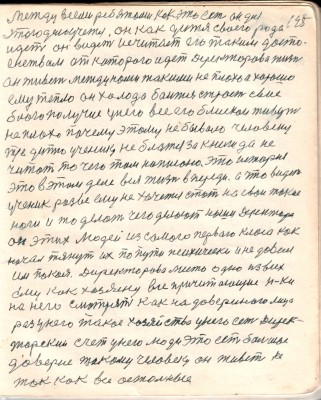 между всеми ребятами как это сот он для
198
этого ученика, он как ученик своего рода
идет он видит и считает его таким досто-
от которого идет директорова жизнь
он живет между ними такими не плохо а хорошо
ему тепло он холода бантся строет свое
благополучие у него все его близкие живут
не плохо почему этому не бывало человеку
ученику не благо за книги да не
читат то чего там написано. Это история
это в этом деле вся жизнь впереди, а что видит
ученик разве ему не хочется стат на свои такие
ноги и то делат чего делают ныни директора
он этих людей из самого первого класа как
начал тянут их по пути психически и не довели
им покоя. Директорово место одно из всех
ему как хозяину все причитающие н-ки
на него смотрят как на доверинного лица
раз у него такое хозяйство у него сет дирек-
торский счет у него люди это сет большое
доверие такому человеку он живет не
так как все остальные